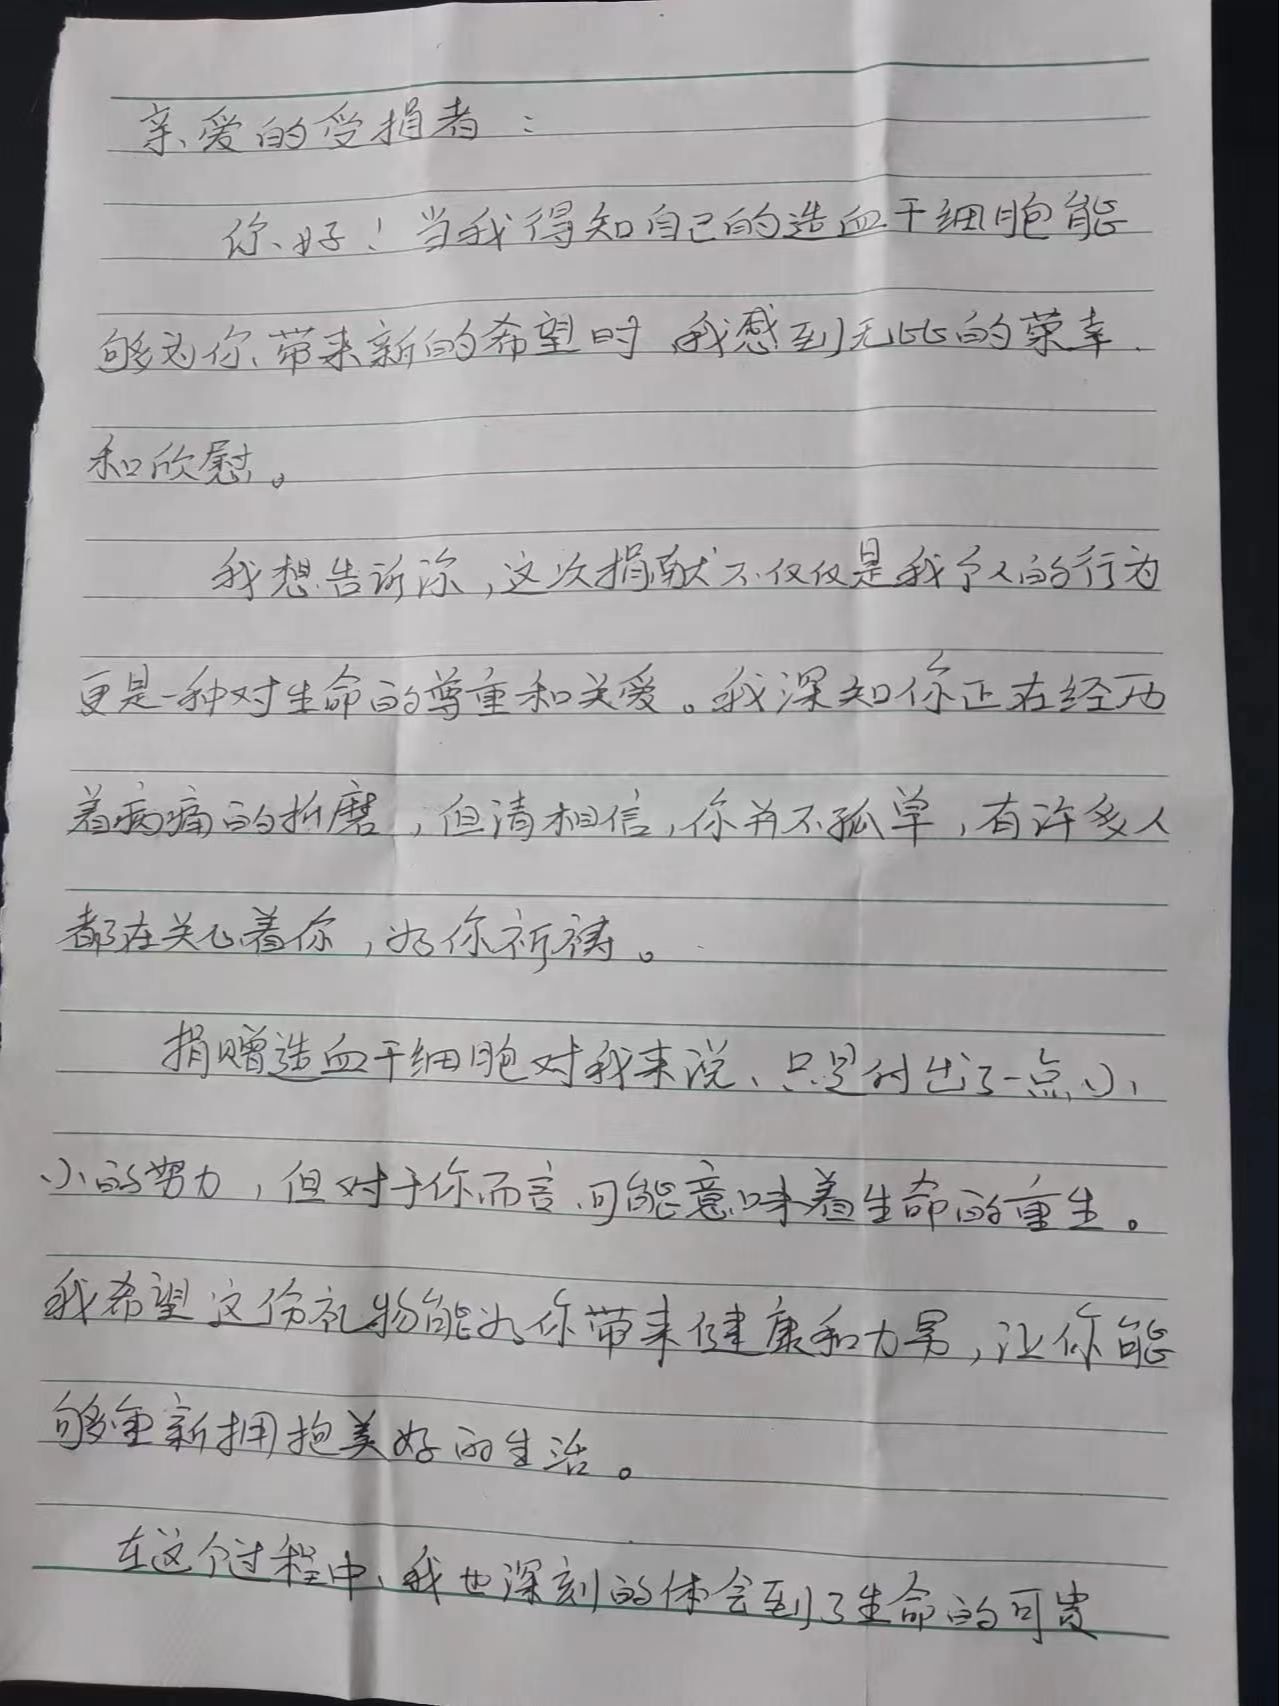 亲爱的受捐者：
你好！当我得知自己的造血干细胞能
够为你带来新的希望时，我感到无比的荣幸
和欣慰。
我想告诉你，这次捐献不仅仅是我个人的行为
更是一种对生命的尊重和关爱。我深知你正在经历
着病痛的折磨，但请相信，你并不孤单，有许多人
都在关心着你，为你祈祷。
捐赠造血干细胞对我来说、只是付出了一点小
小的努力，但对于你而言、可能意味着生命的重生。
我希望这份礼物能为你带来健康和力量，让你能
够重新拥抱美好的生活。
在这个过程中、我也深刻的体会到了生命的可贵